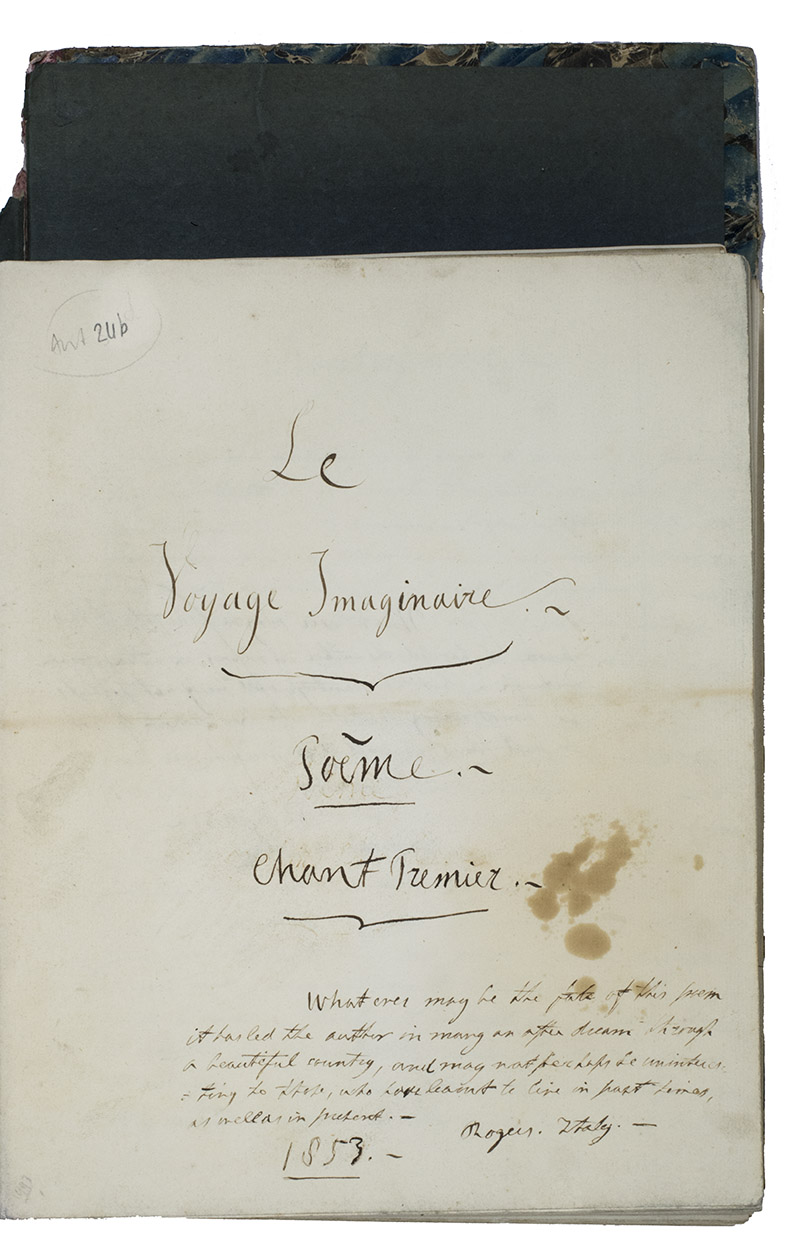 Ant 24b
Le
Voyage Imaginaire. ~
Poëme. ~
Chant Premier. ~
Whatever may be the fate of this poem
it has led the author in many an after dream through
a beautiful country, and may not perhaps be uninteres-
-ting to those, who have learnt to live in past times,
as well as in present. —
Rogers. Italy. —
1853. —